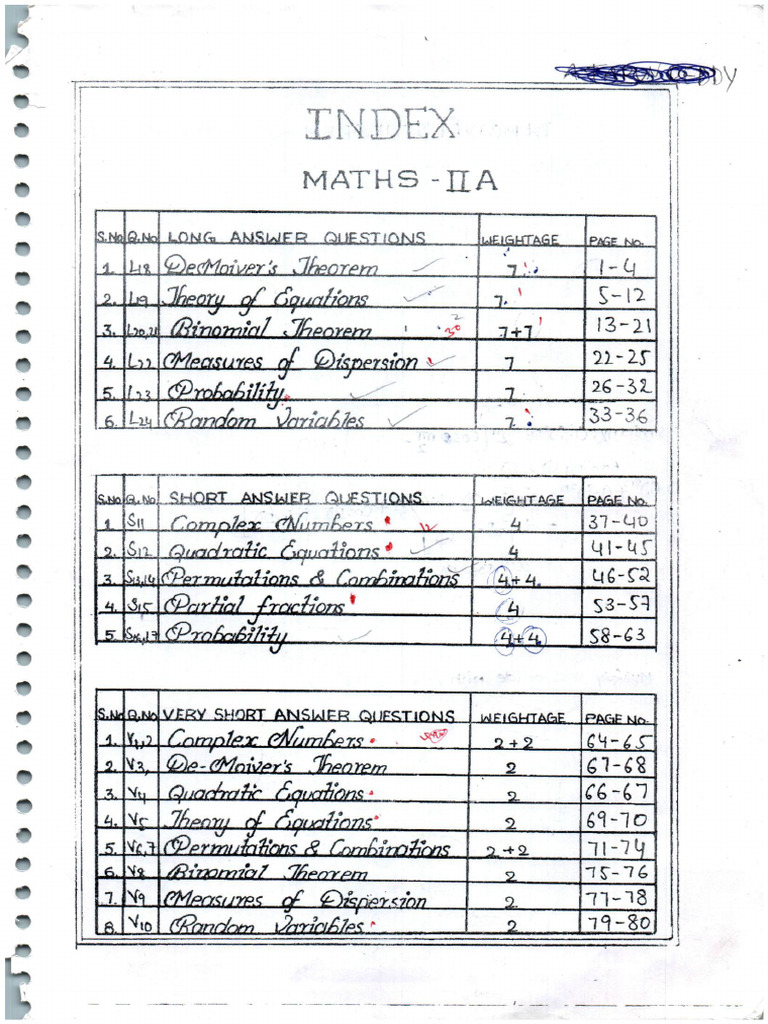 DDY
INDEX
MATHS - II A
S.No Q.No LONG ANSWER QUESTIONS WEIGHTAGE PAGE No.
1. L18 De Moiver's Theorem 7 1-4
2. L19 Theory of Equations 7 5-12
3. L20,21 Binomial Theorem 7+7 13-21
4. L22 Measures of Dispersion 7 22-25
5. L23 Probability 7 26-32
6. L24 Random Variables 7 33-36
S.No Q.No SHORT ANSWER QUESTIONS WEIGHTAGE PAGE No.
1. S11 Complex Numbers 4 37-40
2. S12 Quadratic Equations 4 41-45
3. S13,14 Permutations & Combinations 4+4 46-52
4. S15 Partial fractions 4 53-57
5. S16,17 Probability 4+4 58-63
S.No Q.No VERY SHORT ANSWER QUESTIONS WEIGHTAGE PAGE No.
1. V1,2 Complex Numbers 2+2 64-65
2. V3, De-Moiver's Theorem 2 67-68
3. V4 Quadratic Equations 2 66-67
4. V5 Theory of Equations 2 69-70
5. V6,7 Permutations & Combinations 2+2 71-74
6. V8 Binomial Theorem 2 75-76
7. V9 Measures of Dispersion 2 77-78
8. V10 Random Variables 2 79-80